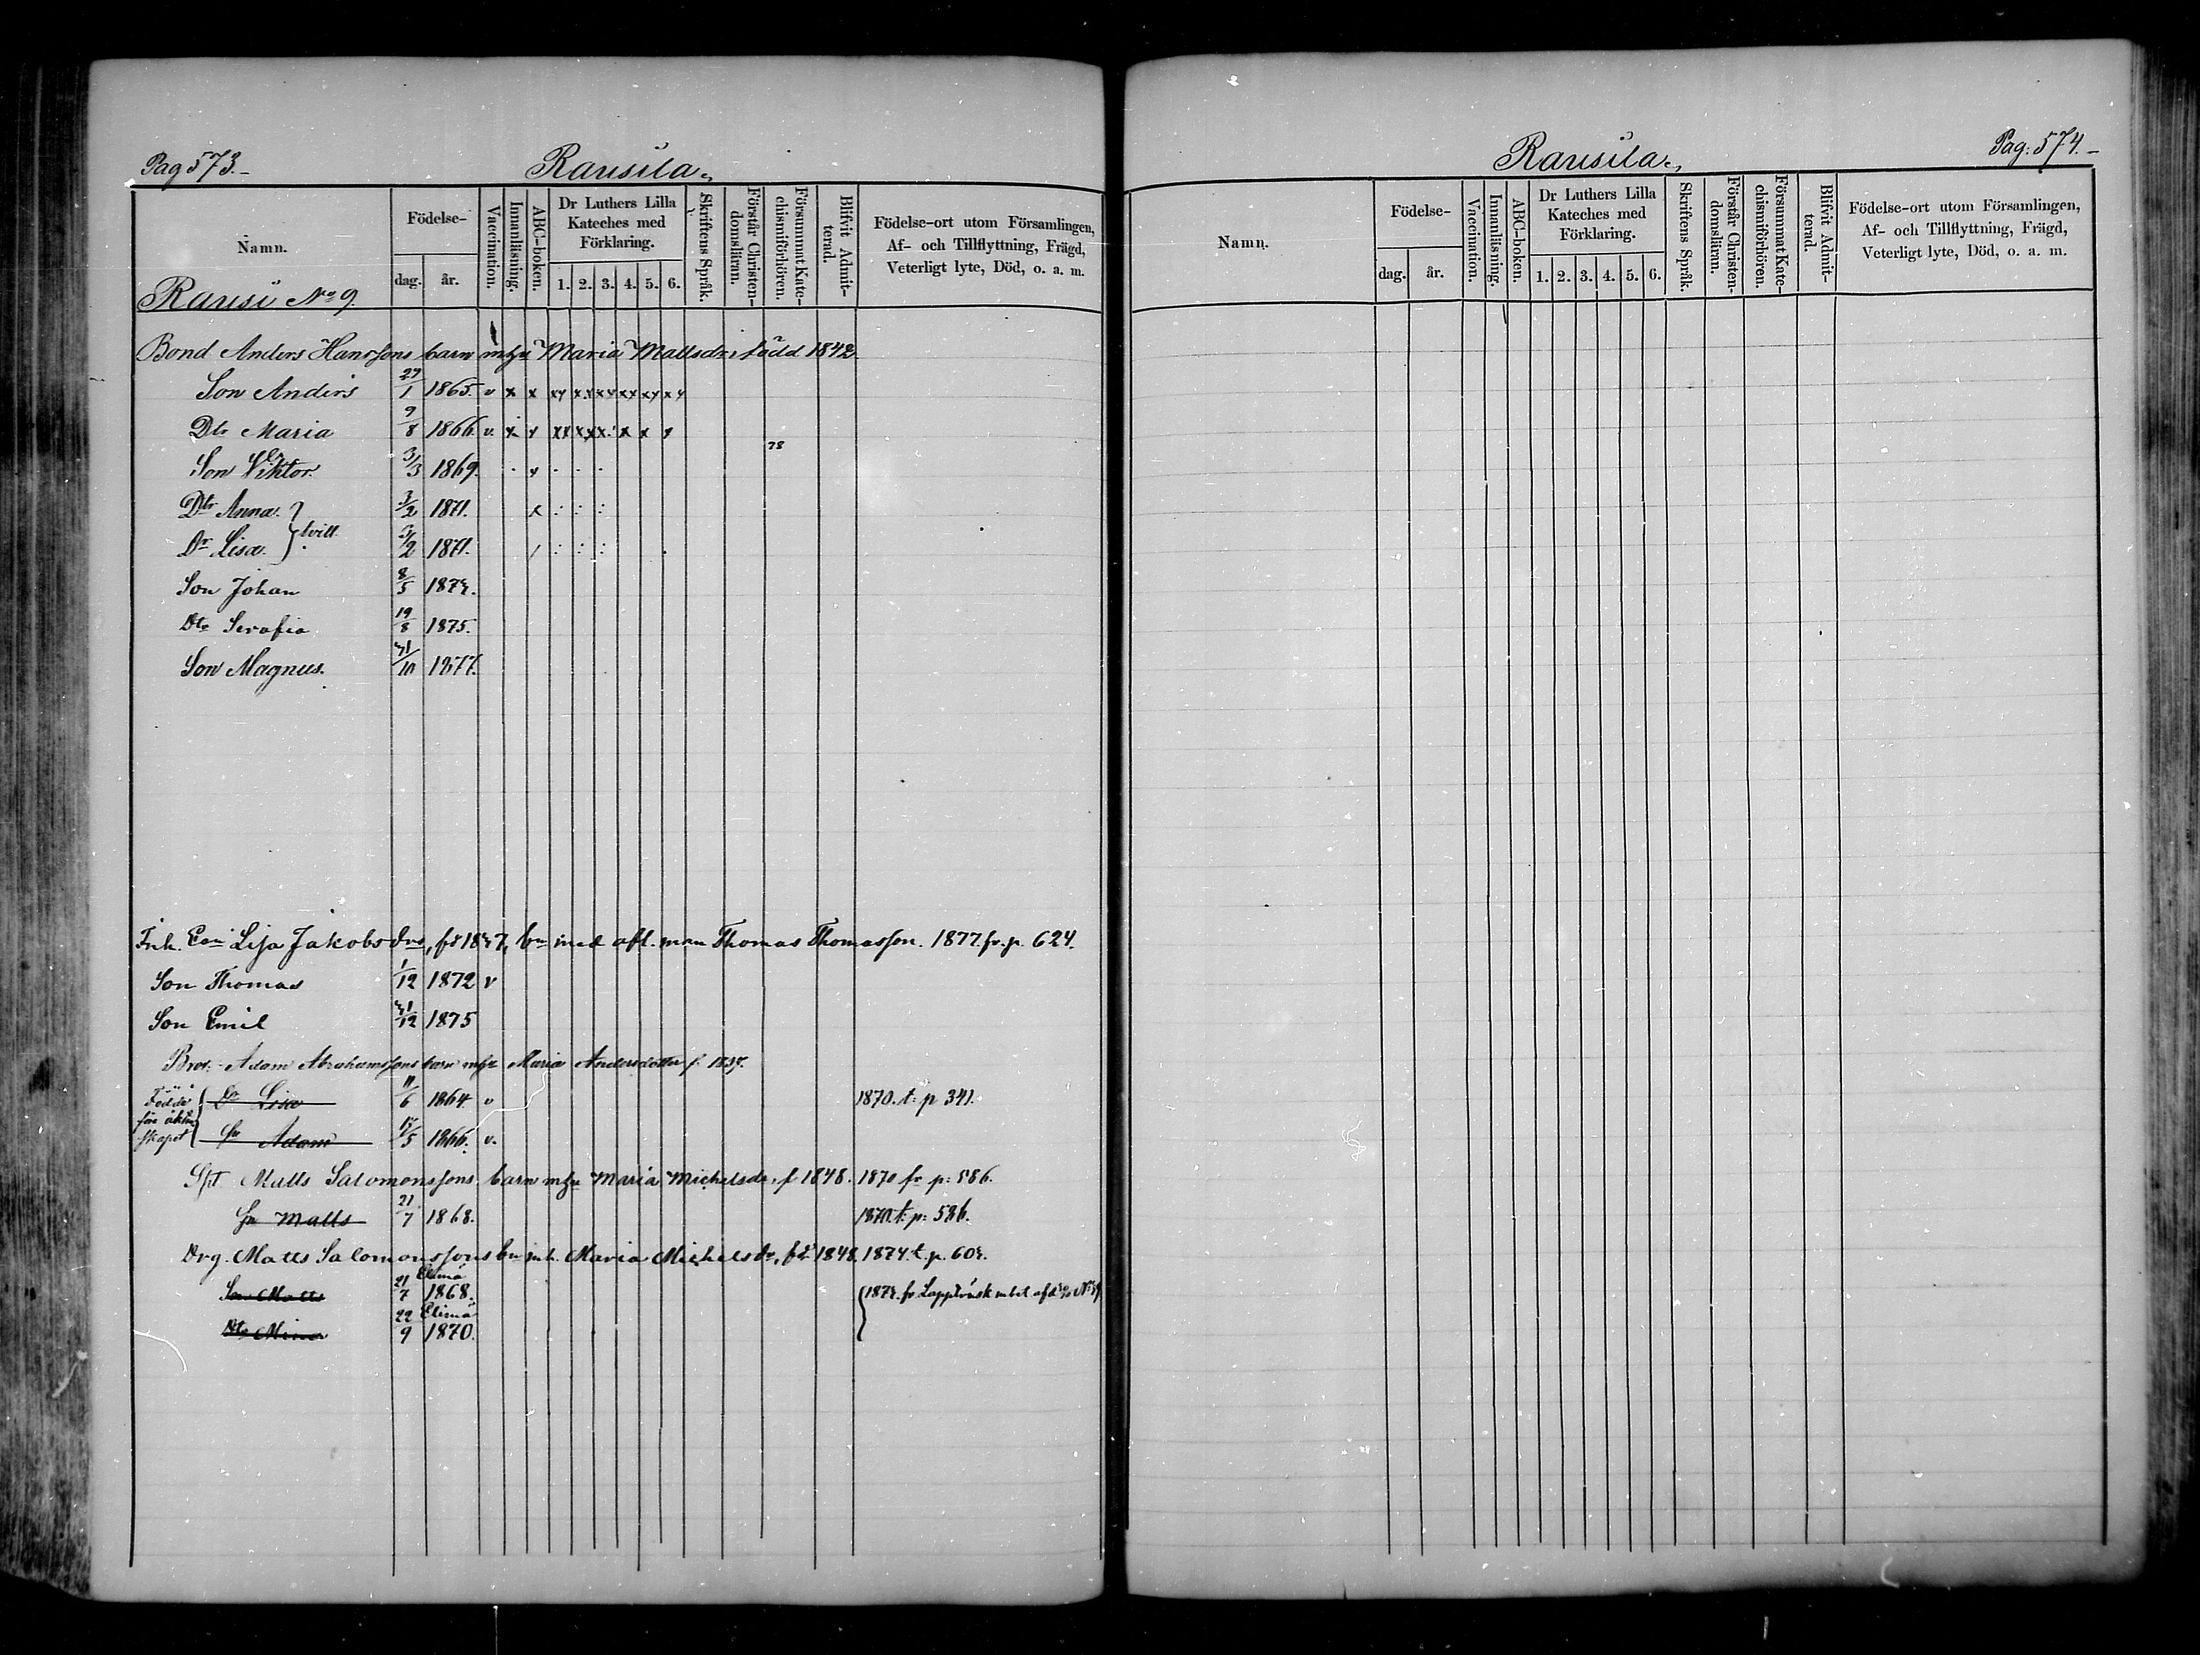 Pag 573.
Rausila.
Namn.
Födelse-
dag. år.
Vaccination.
Innanläsning.
ABC-boken.
Dr Luthers Lilla Kateches med Förklaring.
1. 2. 3. 4. 5. 6.
Skriftens Språk.
Förstår Christendomsläran.
Försummat Katechismiförhören.
Blifvit Admitterad.
Födelse-ort utom Församlingen, Af- och Tillflyttning, Frägd, Veterligt lyte, Död, o. a. m.
Rausi No 9.
Bond Anders Hanssons barn mhu Maria Mattsdr, född 1842.
Son Anders 29/1 1865. v x x xx xx xx xx xx xx
Dtr Maria 9/8 1866. v. x x xx xx x x x x
Son Viktor 3/3 1869. 78
Dtr Anna 3/2 1871. x
Dr Lisa tvill. 3/2 1871.
Son Johan 8/5
Dtr Serafia 19/8 1875.
Son Magnus. 31/10 1877.
Lisa Jakobsdrs, barn med afl. man Thomas Thomasson. 1877 fr. p. 624.
Son Thomas 1/12 1872 v
Son Emil 31/12 1875
Adam Abrahamssons barn mhu Maria Andersdotter f.
Födde för äktenskapet
Dr Lisa 11/6 1864. v 1870. t. p 341.
Sn Adam 1866. v.
Matts Salomonssons barn mhu Maria Michelsdr, f 1848. 1870 fr p: 586.
Sn Matts 21/7 1868. 1870. t. p: 586.
Drg. Matts Salomonssons bn mh. Maria Michelsdr, fd 1848. 1874. t. p.
Son Matts 21/7 Elimä 1868. fr Lappträsk
Dtr Mina 22/9 Elimä 1870.
Pag: 574.
Rausila.
Namn.
Födelse-
dag. år.
Vaccination.
Innanläsning.
ABC-boken.
Dr Luthers Lilla Kateches med Förklaring.
1. 2. 3. 4. 5. 6.
Skriftens Språk.
Förstår Christendomsläran.
Försummat Katechismiförhören.
Blifvit Admitterad.
Födelse-ort utom Församlingen, Af- och Tillflyttning, Frägd, Veterligt lyte, Död, o. a. m.